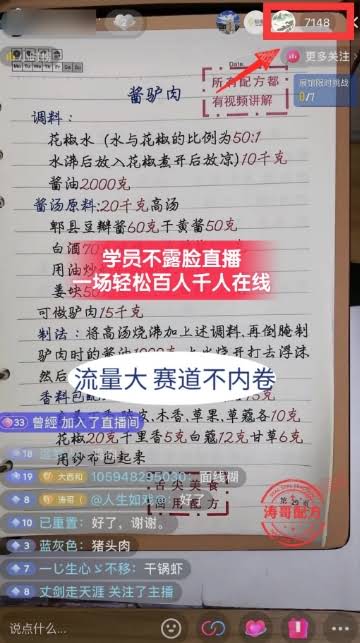 7148
更多关注
Mo Tu We Th Fr Sa Su
Date
展馆限时挑战
0/7
酱驴肉
所有配方都
有视频讲解
调料：
花椒水（水与花椒的比例为50:1
水沸后放入花椒煮开后放凉)10千克
酱油2000克
酱汤原料:20千克高汤
郫县豆瓣酱60克干黄酱50克
白酒
用油炒
姜块50
学员不露脸直播
一场轻松百人千人在线
可做驴肉15千克
制法：将高汤烧沸加上述调料,再倒腌制
驴肉时的酱油1000
烧开打去浮沫
然后
流量大 赛道不内卷
香料包
木香,草果,草蔻各10克
花椒20克千里香5克白蔻12克甘草6克
用纱布包起来
33 曾經 加入了直播间
19 大西和 105948295030：面线糊
8 涛哥 @人生如戏@：好了
10 已重置：好了，谢谢。
3 蓝灰色：猪头肉
8 一じ生心ゞ不移：干锅虾
8 丈剑走天涯 关注了主播
舌尖美食
商用配方
涛哥配方
说点什么...